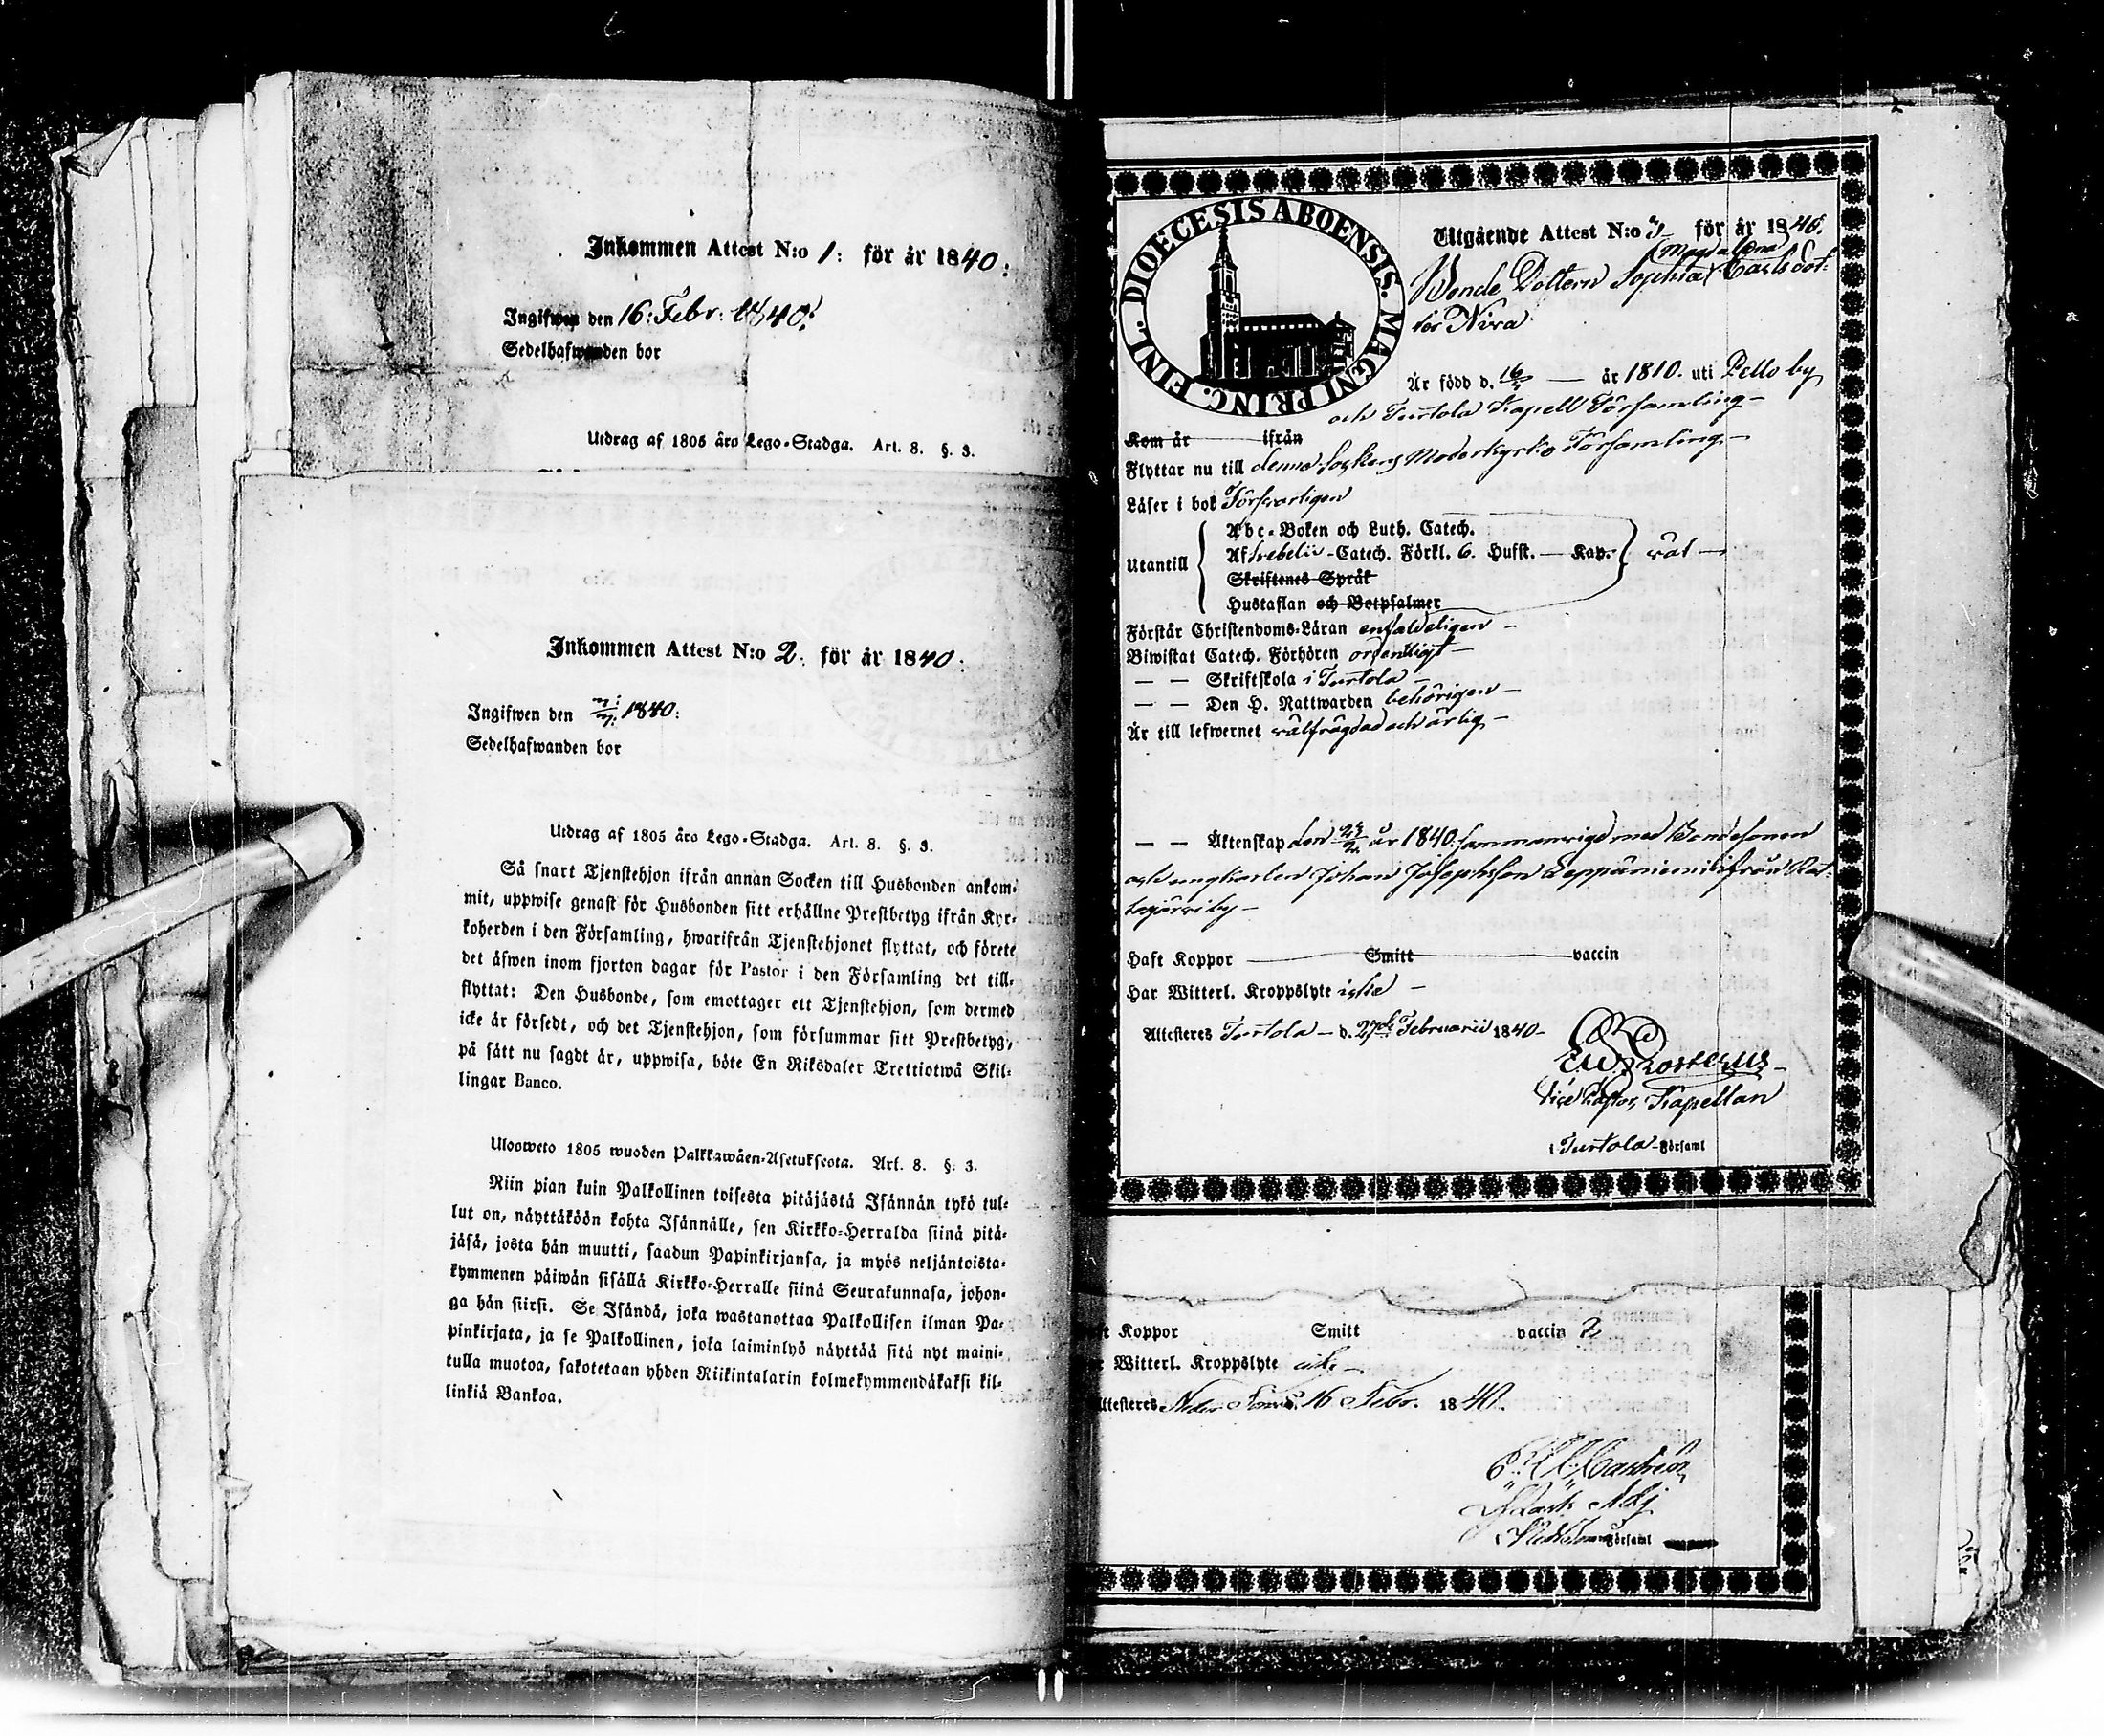 Inkommen Attest N:o 1: för år 1840:
Ingifwen den 16: Febr: 1840:
Sedelhafwanden bor
Utdrag af 1805 års Lego-Stadga. Art. 8. §. 3.
Inkommen Attest N:o 2: för år 1840:
Ingifwen den 1840:
Sedelhafwanden bor
Utdrag af 1805 års Lego-Stadga. Art. 8. §. 3.
Så snart Tjenstehjon ifrån annan Socken till Husbonden ankom-
mit, uppwise genast för Husbonden sitt erhållne Prestbetyg ifrån Kyr-
koherden i den Församling, hwarifrån Tjenstehjonet flyttat, och förete
det äfwen inom fjorton dagar för Pastor i den Församling det till-
flyttat: Den Husbonde, som emottager ett Tjenstehjon, som dermed
icke är försedt, och det Tjenstehjon, som försummar sitt Prestbetyg,
på sätt nu sagdt är, uppwisa, böte En Riksdaler Trettiotwå Skil-
lingar Banco.
Ulosweto 1805 wuoden Palkkawäen-Asetuksesta. Art. 8. §. 3.
Niin pian kuin Palkollinen toisesta pitäjästä Isännän tykö tul-
lut on, näyttäköön kohta Isännälle, sen Kirkko-Herralda siinä pitä-
jäsä, josta hän muutti, saadun Papinkirjansa, ja myös neljäntoista-
kymmenen päiwän sisällä Kirkko-Herralle siinä Seurakunnasa, johon-
ga hän siirsi. Se Isändä, joka wastanottaa Palkollisen ilman Pa-
pinkirjata, ja se Palkollinen, joka laiminlyö näyttää sitä nyt maini-
tulla muotoa, sakotetaan yhden Riikintalarin kolmekymmendäkaksi kil-
linkiä Bankoa.
DIOECESIS ABOENSIS. MAGNI PRINC. FINL.
Utgående Attest N:o 3 för år 1840.
Magdalena
Bonde Dottern Sophia Carlsdot-
ter Niva
Är född d. 16 — år 1810. uti Pello by
och Turtola Kapell Församling —
Kom år ifrån
Flyttar nu till denna Sockens Moderkyrko Församling —
Läser i bok Försvarligen
Utantill
Abc-Boken och Luth. Catech.
Afhrebelii-Catech. Förkl. 6. Hufst. — Kap. väl —
Skriftenes Språk
Hustaflan och Botpsalmer
Förstår Christendoms-Läran enfaldeligen —
Biwistat Catech. Förhören ordentligt —
— — Skriftskola i Turtola —
— — Den H. Nattwarden behörigen —
Är till lefwernet välfrägdad och ärlig —
— — Äktenskap den år 1840. sammanvigd med Bondesonen
och ungkarlen Johan Josephsson Leppäniemi ifrån Rat-
tosjärvi by —
Haft Koppor Smitt vaccin
Har Witterl. Kroppslyte icke —
Attesteras Turtola — d. 27de Februarii 1840 —
Vice Pastor, Kapellan
i Turtola Församl
Koppor Smitt vaccin
Witterl. Kroppslyte icke —
Attesteras Neder Torneå 16 Febr. 1840.
Castrén
Församl